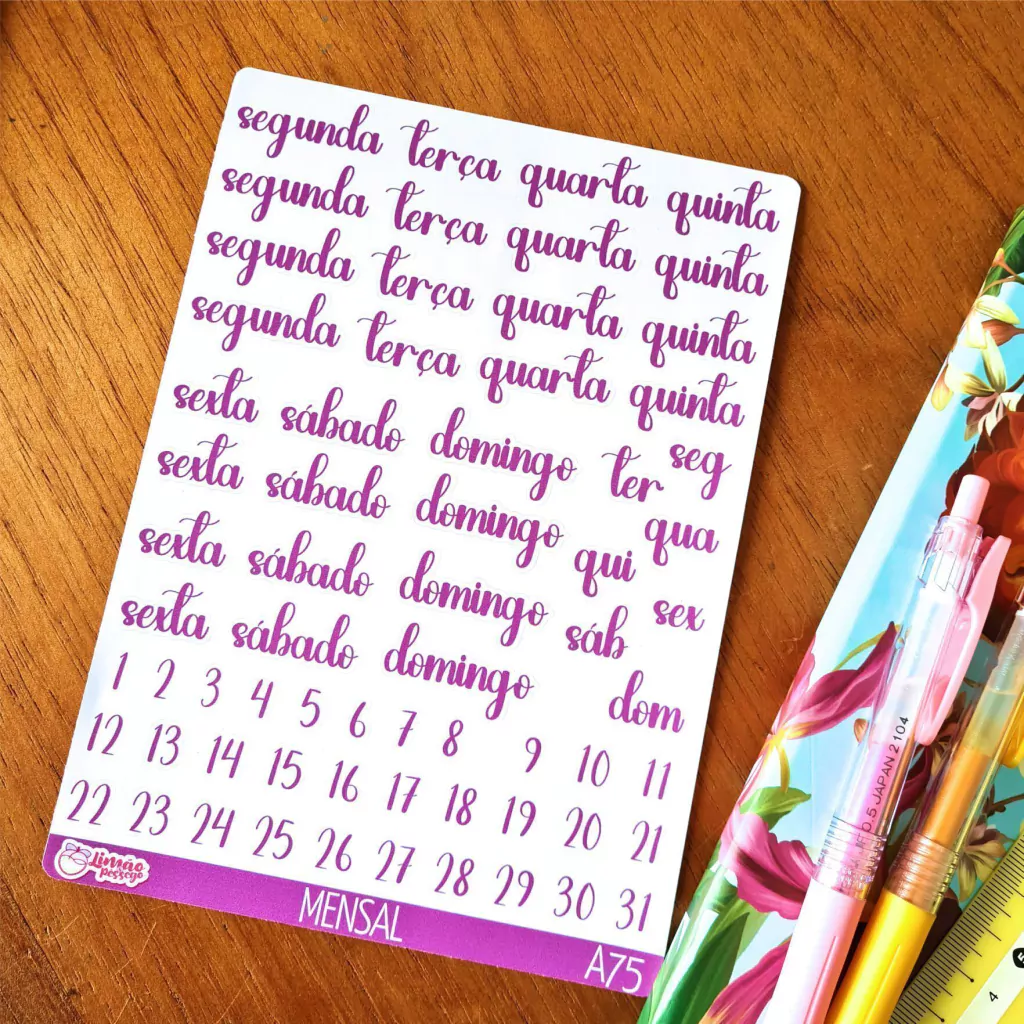 segunda terça quarta quinta
segunda terça quarta quinta
segunda terça quarta quinta
segunda terça quarta quinta
sexta sábado domingo ter seg
sexta sábado domingo qui qua
sexta sábado domingo sáb sex
sexta sábado domingo dom
1 2 3 4 5 6 7 8 9 10 11
12 13 14 15 16 17 18 19 20 21
22 23 24 25 26 27 28 29 30 31
Limão
pessego
MENSAL
A75
0.5 JAPAN 2104
4
5